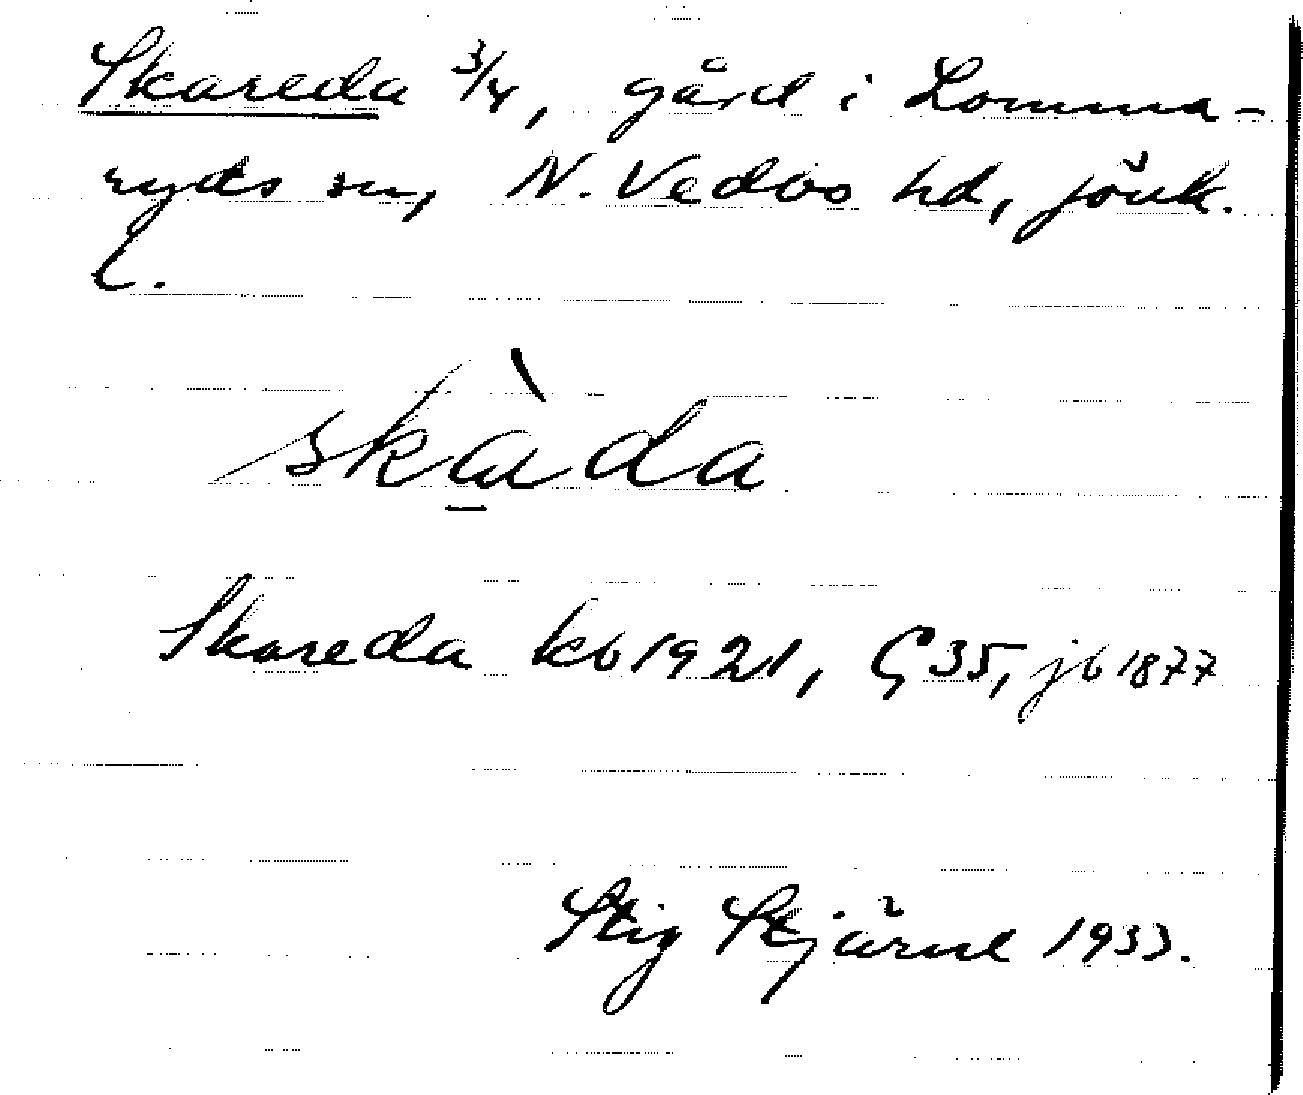 Skareda 3/4, gård i Lomma-
ryds sn, N. Vedbo hd, Jönk.
l.
skàda
Skareda kb 1921, G 35, jb 1877
Stig Stjärne 1933.